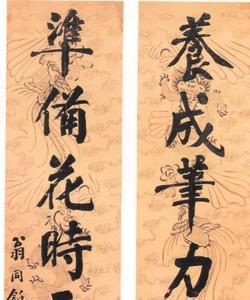 養成筆力
準備花時
翁同龢